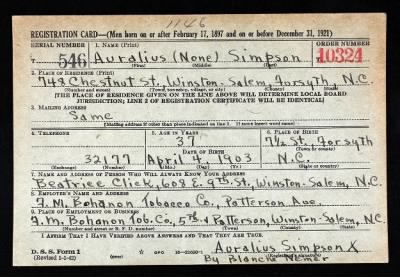 1146
REGISTRATION CARD—(Men born on or after February 17, 1897 and on or before December 31, 1921)
SERIAL NUMBER 1. NAME (Print) ORDER NUMBER
T 546 Auralius (None) Simpson 10324
(First) (Middle) (Last)
2. PLACE OF RESIDENCE (Print)
748 Chestnut St. Winston-Salem, Forsyth, N.C.
(Number and street) (Town, township, village, or city) (County) (State)
[THE PLACE OF RESIDENCE GIVEN ON THE LINE ABOVE WILL DETERMINE LOCAL BOARD
JURISDICTION; LINE 2 OF REGISTRATION CERTIFICATE WILL BE IDENTICAL]
3. MAILING ADDRESS
Same
[Mailing address if other than place indicated on line 2. If same insert word same]
4. TELEPHONE 5. AGE IN YEARS 6. PLACE OF BIRTH
37
DATE OF BIRTH (Town or county)
32177 April 4, 1903 N.C.
(Exchange) (Number) (Mo.) (Day) (Yr.) (State or country)
7. NAME AND ADDRESS OF PERSON WHO WILL ALWAYS KNOW YOUR ADDRESS
Beatrice Click, 603 E. 9th St., Winston-Salem, N.C.
8. EMPLOYER'S NAME AND ADDRESS
F.M. Bohanon Tobacco Co., Patterson Ave.
9. PLACE OF EMPLOYMENT OR BUSINESS
F.M. Bohanon Tob. Co., 5th & Patterson, Winston-Salem, N.C.
(Number and street or R. F. D. number) (Town) (County) (State)
I AFFIRM THAT I HAVE VERIFIED ABOVE ANSWERS AND THAT THEY ARE TRUE.
D. S. S. Form 1 Auralius Simpson X
(Revised 1-1-42) By Blanche Hemer